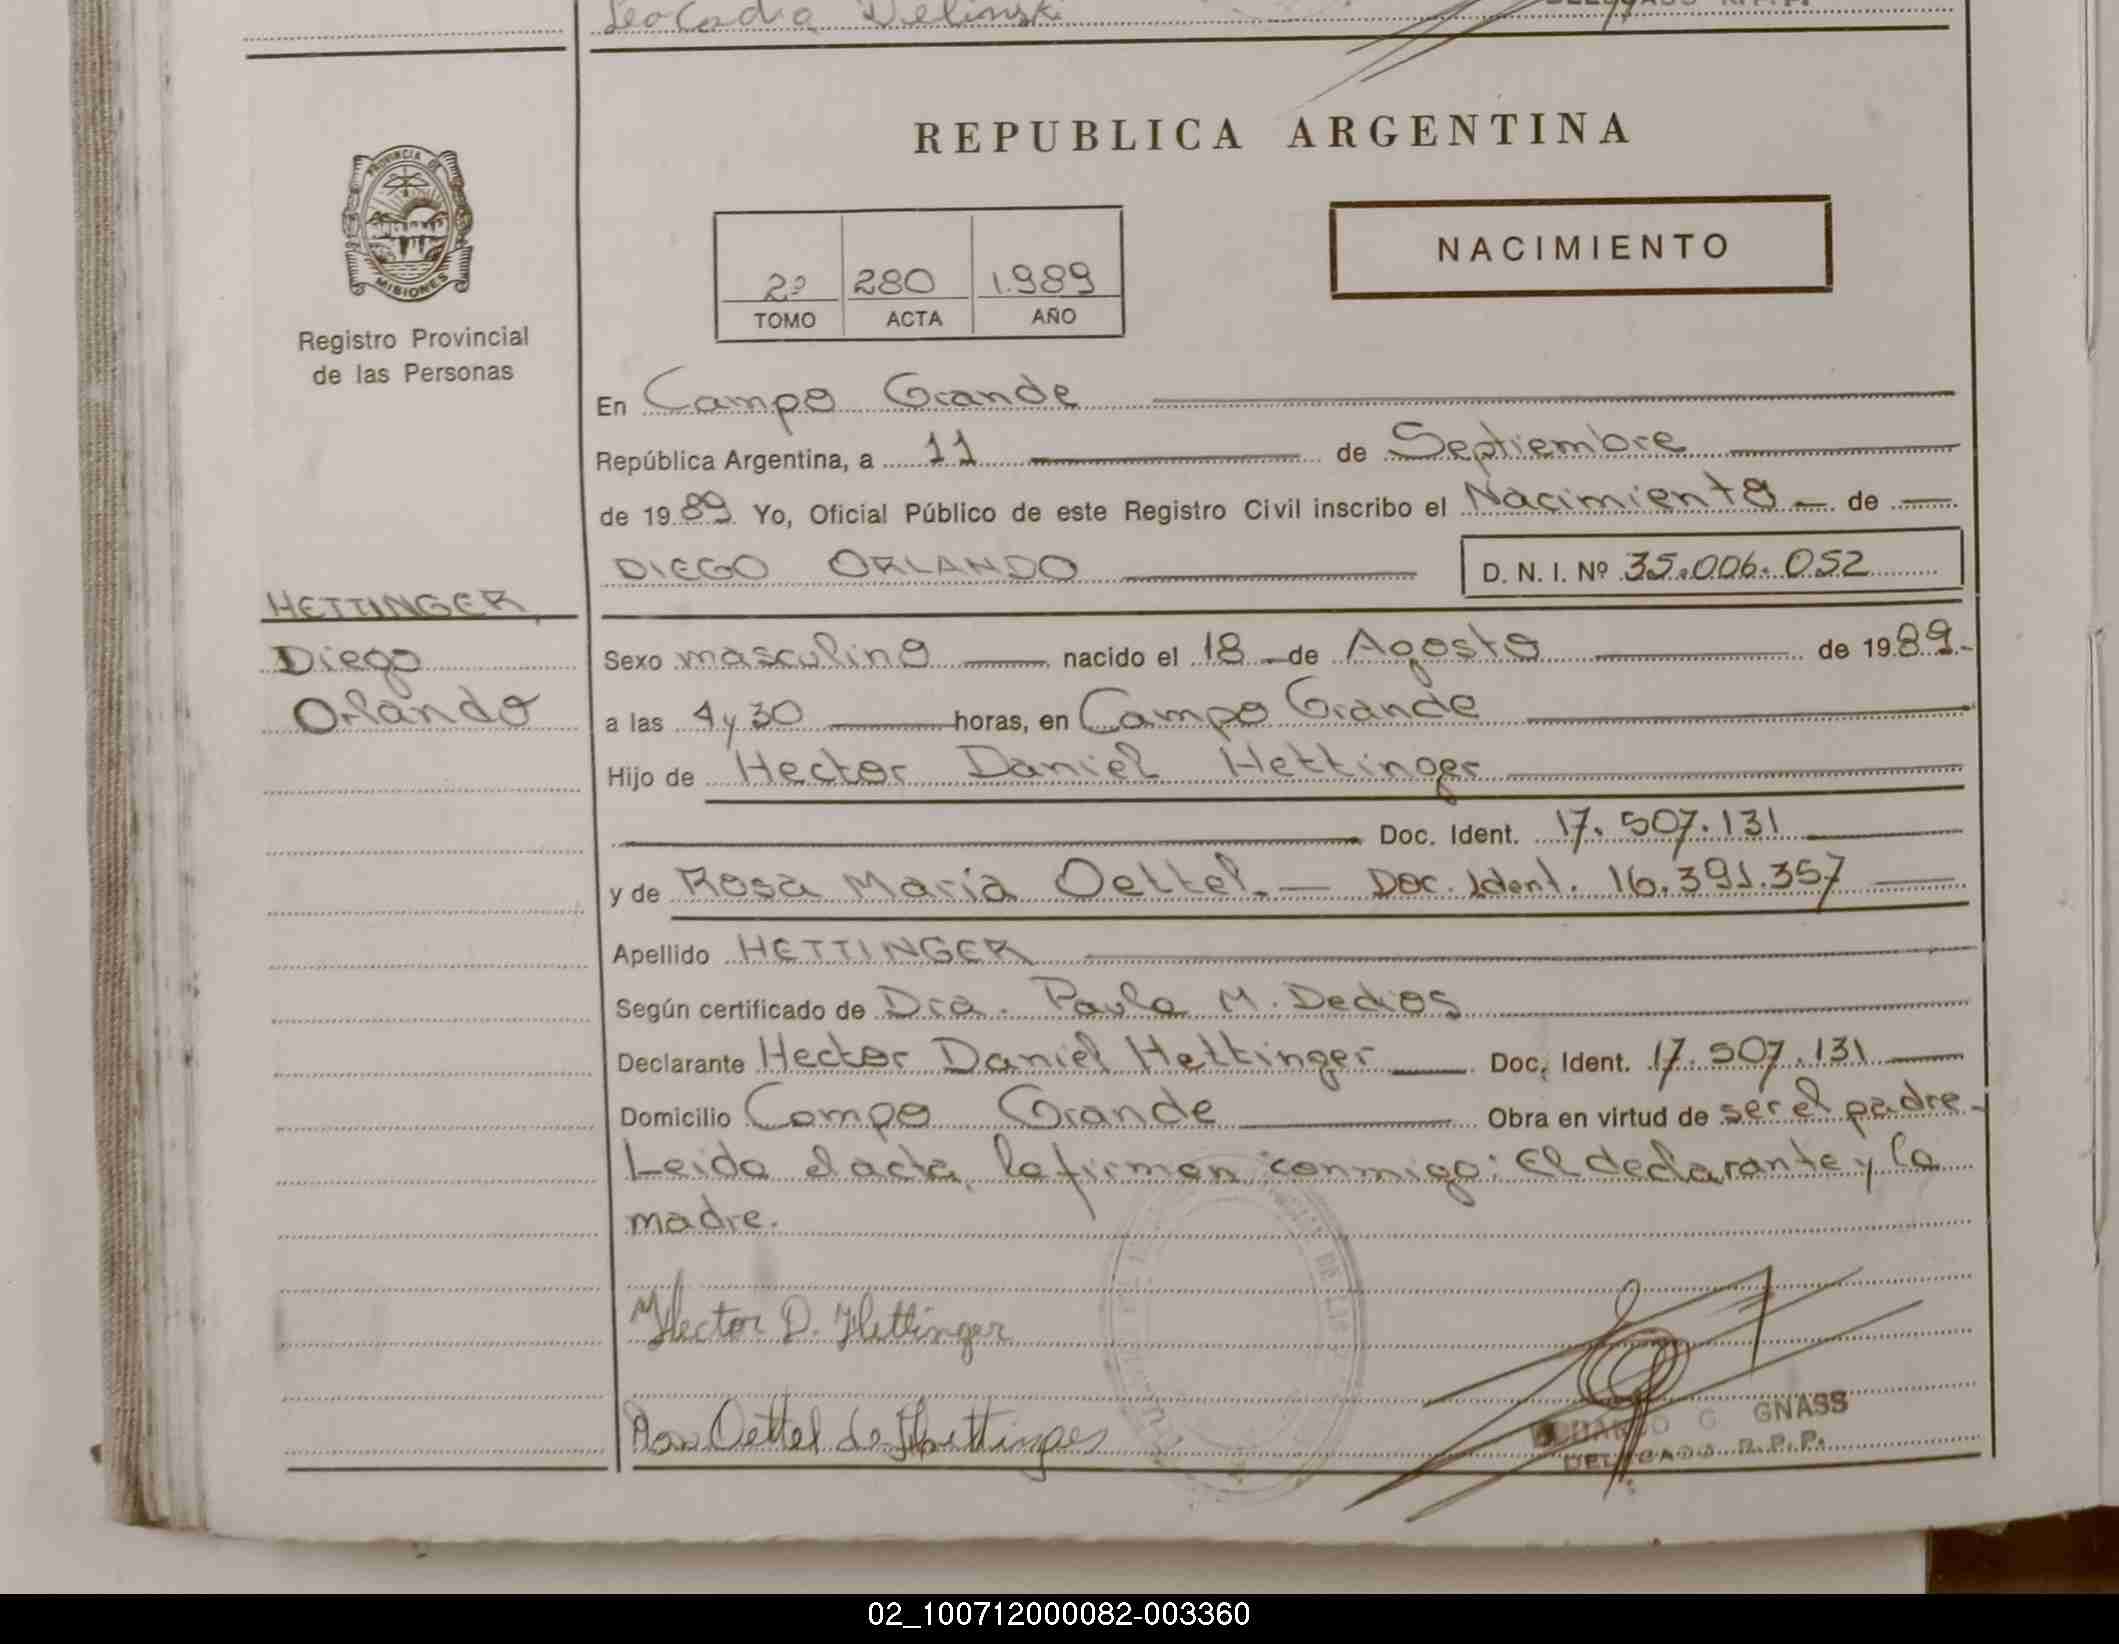 Leocadia Delinski
DELEGADO R.P.P.
PROVINCIA DE
MISIONES
Registro Provincial
de las Personas
REPUBLICA ARGENTINA
NACIMIENTO
2º 280 1.989
TOMO ACTA AÑO
En Campo Grande
República Argentina, a 11 de Septiembre
de 1989 Yo, Oficial Público de este Registro Civil inscribo el Nacimiento de
DIEGO ORLANDO D. N. I. Nº 35.006.052
HETTINGER
Diego
Orlando
Sexo masculino nacido el 18 de Agosto de 1989.-
a las 4 y 30 horas, en Campo Grande
Hijo de Hector Daniel Hettinger
Doc. Ident. 17.507.131
y de Rosa Maria Oettel.- Doc. Ident. 16.391.357
Apellido HETTINGER
Según certificado de Dra. Paula M. Dedios
Declarante Hector Daniel Hettinger Doc. Ident. 17.507.131
Domicilio Campo Grande Obra en virtud de ser el padre-
Leida el acta, la firman conmigo: El declarante y la
madre.
Hector D. Hettinger
Oettel de Hettinger
G. GNASS
DELEGADO R.P.P.
02_100712000082-003360